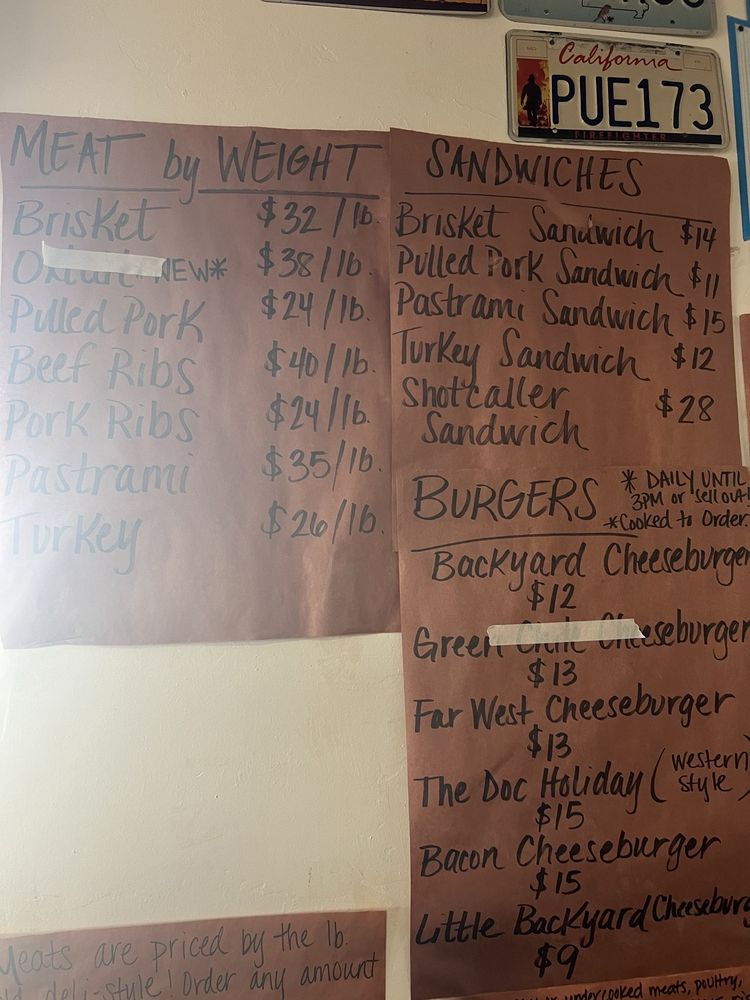 California
PUE173
FIREFIGHTER
MEAT by WEIGHT
Brisket $32/lb.
NEW* $38/lb.
Pulled Pork $24/lb.
Beef Ribs $40/lb.
Pork Ribs $24/lb.
Pastrami $35/lb.
Turkey $26/lb.
SANDWICHES
Brisket Sandwich $14
Pulled Pork Sandwich $11
Pastrami Sandwich $15
Turkey Sandwich $12
Shotcaller $28
Sandwich
BURGERS
* DAILY UNTIL
3PM or sell out!
*Cooked to Order.
Backyard Cheeseburger
$12
Green Chile Cheeseburger
$13
Far West Cheeseburger
$13
The Doc Holiday (western
style)
$15
Bacon Cheeseburger
$15
Little Backyard Cheeseburg
$9
Meats are priced by the lb.
deli-style! Order any amount
undercooked meats, poultry,